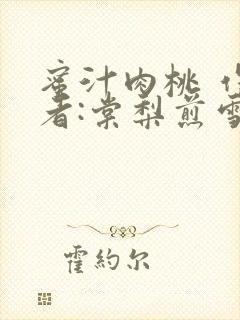 蜜汁肉桃 作
者:棠梨煎雪
霍約尔